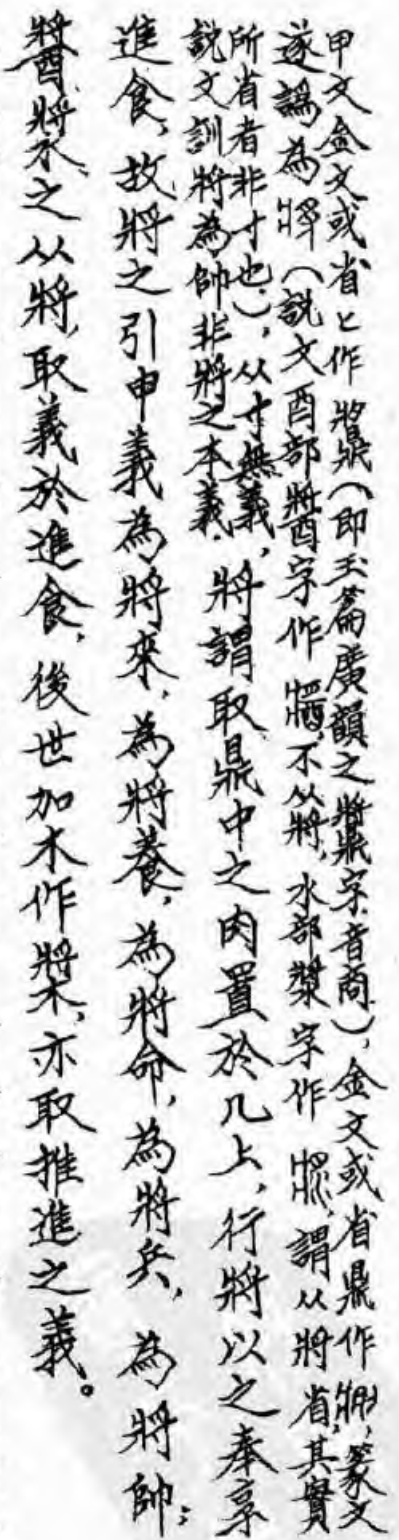 甲文金文或省匕作䵼(即玉篇廣韻之䵼字音商),金文或省鼎作牀,篆文
遂譌為將(說文酉部醬字作牆,不从將,水部漿字作㳾,謂从將省,其實
所省者非寸也),从寸無義,
說文訓將為帥非將之本義.將謂取鼎中之肉置於几上,行將以之奉享
進食,故將之引申義為將來,為將養,為將命,為將兵,為將帥;
醬、漿之从將,取義於進食,後世加木作槳,亦取推進之義。